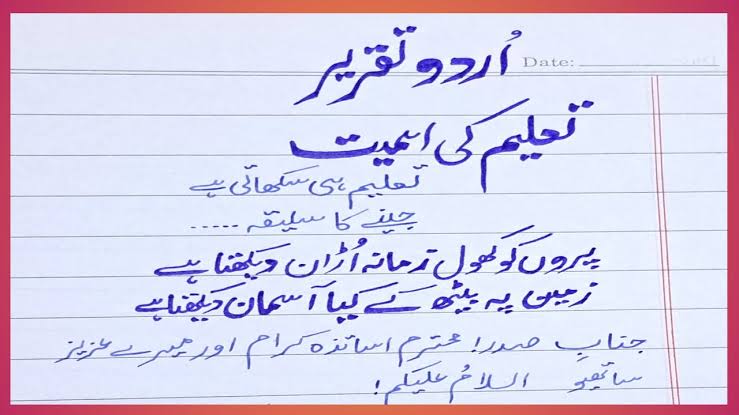 اُردو تقریر
Date:
تعلیم کی اہمیت
تعلیم ہی سکھاتی ہے
جینے کا سلیقہ .....
پروں کو کھول زمانہ اُڑان دیکھتا ہے
زمین پہ بیٹھ کے کیا آسمان دیکھتا ہے
جنابِ صدر! محترم اساتذہ کرام اور میرے عزیز
ساتھیو السلامُ علیکم!